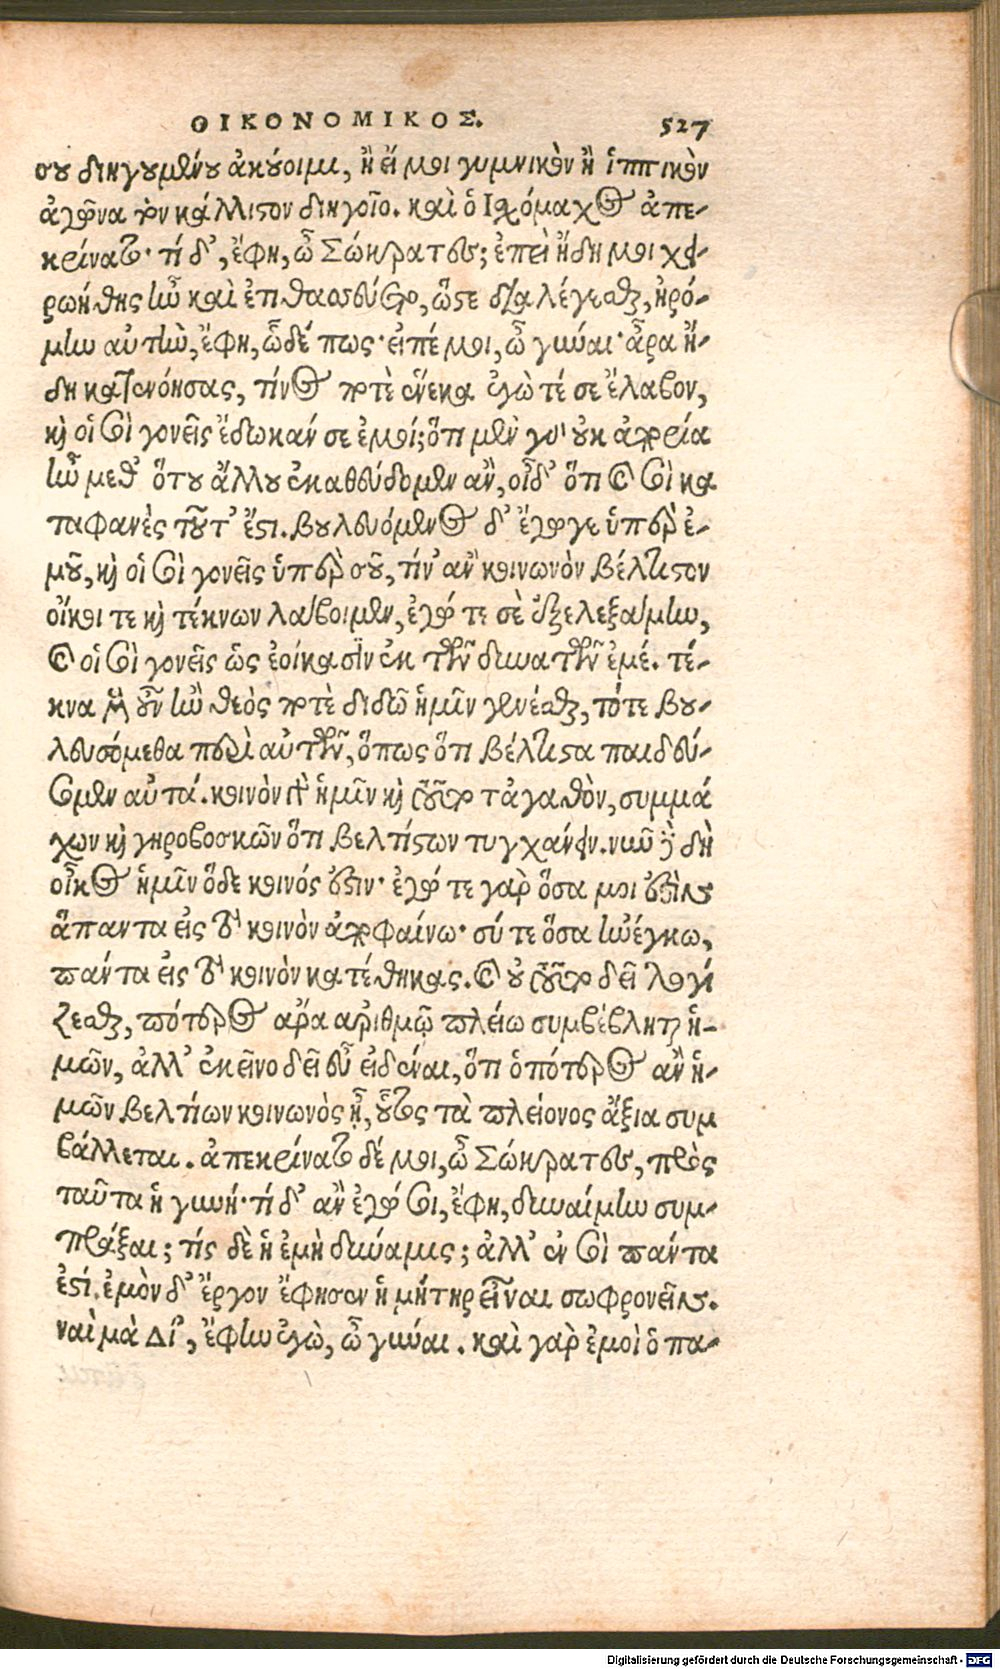 ΟΙΚΟΝΟΜΙΚΟΣ. 527
σου διηγουμένου ἀκούοιμι, ἢ εἴ μοι γυμνικὸν ἢ ἱππικὸν
ἀγῶνα τὸν κάλλιστον διηγοῖο. καὶ ὁ Ἰσχόμαχος ἀπε-
κρίνατο· τί δ', ἔφη, ὦ Σώκρατες; ἐπεὶ ἤδη μοι χει-
ροήθης ἦν καὶ ἐτιθασσεύετο, ὥστε διαλέγεσθαι, ἠρό-
μην αὐτὴν, ἔφη, ὧδέ πως· εἰπέ μοι, ὦ γύναι· ἆρα ἤ-
δη κατενόησας, τίνος ποτὲ ἕνεκα ἐγὼ τέ σε ἔλαβον,
καὶ οἱ σοὶ γονεῖς ἔδωκάν σε ἐμοί; ὅτι μὲν γὰρ οὐκ ἀπορία
ἦν μεθ' ὅτου ἄλλου ἐκαθεύδομεν ἂν, οἶδ' ὅτι καὶ σοὶ κα
ταφανὲς τοῦτ' ἔστι. βουλευόμενος δ' ἔγωγε ὑπὲρ ἐ-
μοῦ, καὶ οἱ σοὶ γονεῖς ὑπὲρ σοῦ, τίν' ἂν κοινωνὸν βέλτιστον
οἴκου τε καὶ τέκνων λάβοιμεν, ἐγώ τε σὲ ἐξελεξάμην,
καὶ οἱ σοὶ γονεῖς ὡς ἐοίκασιν ἐκ τῶν δυνατῶν ἐμέ. τέ-
κνα μὲν οὖν ἢν θεὸς ποτὲ διδῶ ἡμῖν γενέσθαι, τότε βου-
λευσόμεθα περὶ αὐτῶν, ὅπως ὅτι βέλτιστα παιδεύ-
σομεν αὐτά. κοινὸν γὰρ ἡμῖν καὶ τοῦτο τἀγαθὸν, συμμά
χων καὶ γηροβοσκῶν ὅτι βελτίστων τυγχάνειν. νῦν δὲ δὴ
οἶκος ἡμῖν ὅδε κοινός ἐστιν· ἐγώ τε γὰρ ὅσα μοι ἐστὶν
ἅπαντα εἰς τὸ κοινὸν ἀποφαίνω· σύ τε ὅσα ἠνέγκω,
πάντα εἰς τὸ κοινὸν κατέθηκας. καὶ οὐ τοῦτο δεῖ λογί
ζεσθαι, πότερος ἄρα ἀριθμῷ πλείω συμβέβληται ἡ-
μῶν, ἀλλ' ἐκεῖνο δεῖ εὖ εἰδέναι, ὅτι ὁπότερος ἂν ἡ-
μῶν βελτίων κοινωνὸς ᾖ, οὗτος τὰ πλείονος ἄξια συμ
βάλλεται. ἀπεκρίνατο δέ μοι, ὦ Σώκρατες, πρὸς
ταῦτα ἡ γυνή· τί δ' ἂν ἐγώ σοι, ἔφη, δυναίμην συμ-
πρᾶξαι; τίς δὲ ἡ ἐμὴ δύναμις; ἀλλ' ἐν σοὶ πάντα
ἐστί. ἐμὸν δ' ἔργον ἔφησεν ἡ μήτηρ εἶναι σωφρονεῖν.
ναὶ μὰ Δί', ἔφην ἐγὼ, ὦ γύναι. καὶ γὰρ ἐμοὶ ὁ πα-
Digitalisierung gefördert durch die Deutsche Forschungsgemeinschaft - DFG